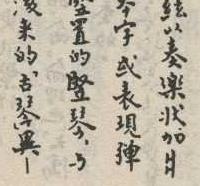 絃以奏樂狀加
字或表現彈
豎置的豎琴，与
後来的古琴異